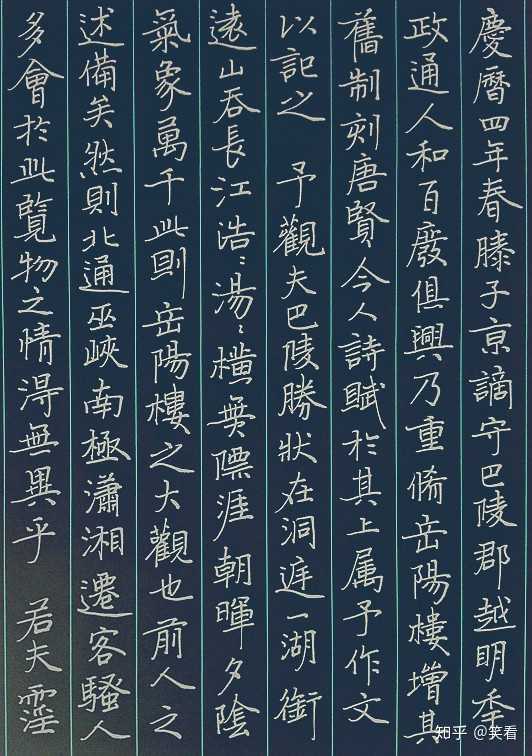 慶曆四年春滕子京謫守巴陵郡越明年
政通人和百廢俱興乃重脩岳陽樓增其
舊制刻唐賢今人詩賦於其上属予作文
以記之 予觀夫巴陵勝狀在洞庭一湖銜
遠山吞長江浩〻湯〻橫無際涯朝暉夕陰
氣象萬千此則岳陽樓之大觀也前人之
述備矣然則北通巫峽南極瀟湘遷客騷人
多會於此覽物之情得無異乎 若夫霪
知乎 @笑看